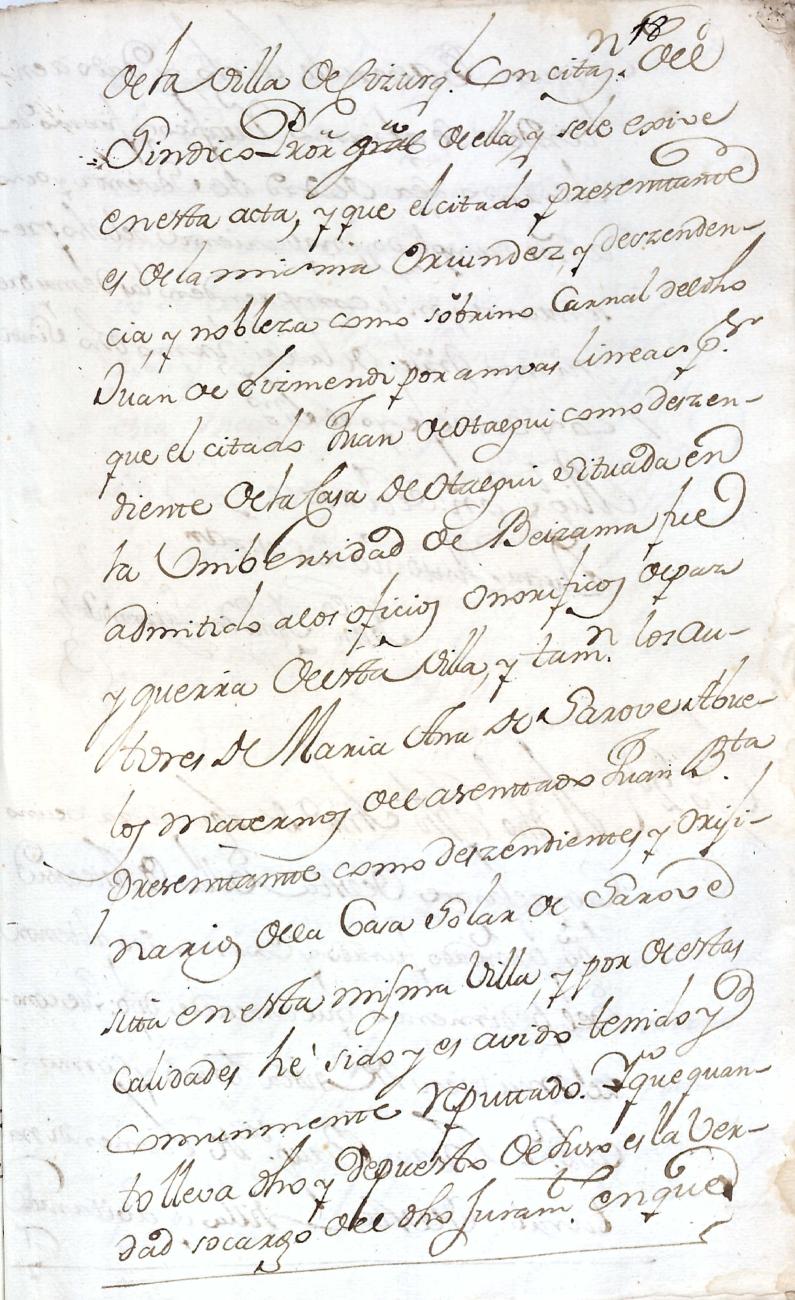 18
de la Villa de Vizurq. Con citaz.n del
Sindico Pror gral de ella q sele exive
en esta acta, y que el citado presenttante
es de la misma Oriundez, y deszenden-
cia, y nobleza como sobrino Carnal del dho
Juan de Yrimendi por amvas lineas p.r
que el citado Juan de Otaegui como deszen-
diente de la Casa de Otaegui situada en
la Unibersidad de Beizama fue
admitido a los oficios Onorificos de paz
y guerra de esta Villa, y tam.n los Au-
tores de Maria Ana de Sarove Abue-
los maternos del asenttado Juan B.ta
presenttante como deszendientes y Orixi-
narios de la Casa Solar de Sarove
sitta en esta misma Villa, y por de estas
Calidades hé sido y es avido tenido y
comunmente Reputtado. Y que quan-
to lleva dho y depuesto de suso es la Ver-
dad so cargo del dho Juram.to en que